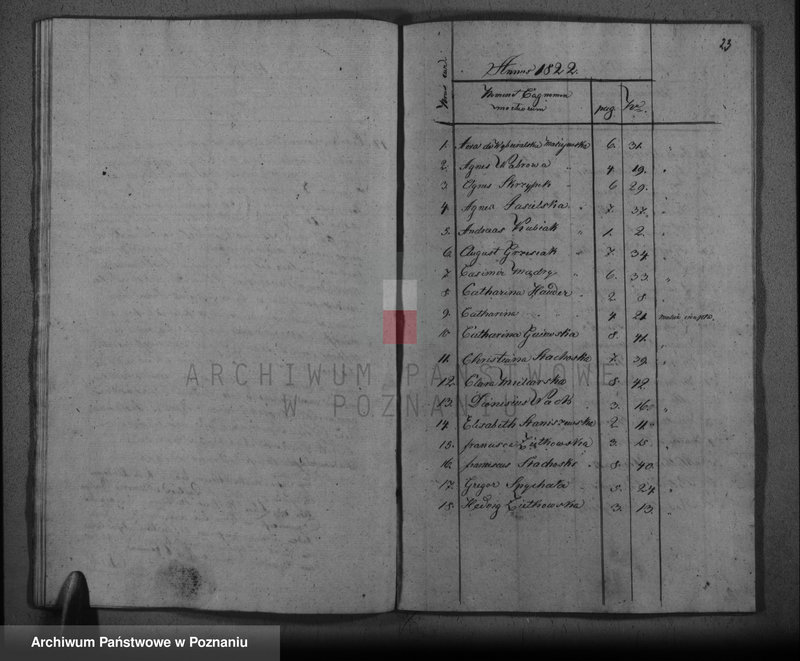 23
Annus 1822.
Nomina et Cognomina
mortuorum
pag. Nro.
1. Anna 6. 31.
2. Agnes 4. 19.
3 Agnes Skrzypek 6 29.
4. Agnes Jasielska 7. 37.
5. Andreas Kubiak 1. 2.
6. August Grzesiak 7. 34
7. Casimir Mądry 6. 33
8 Catharina Hauder 2 8.
9. Catharina 4 21
10. Catharina Gaiewska 8. 41.
11. Christiana Stachoska 7. 39.
12. Clara Mitarska 8. 42.
13. Dionisius 3. 16.
14. Elisabeth Staniszewska 2 11
15. francisca Ziętkowska 3. 15.
16. franciscus Stachoski 8. 40.
17. Gregor Spychała 5. 24.
18. Hedvig Ziętkowska 3. 13.
ARCHIWUM PAŃSTWOWE
W POZNANIU
Archiwum Państwowe w Poznaniu